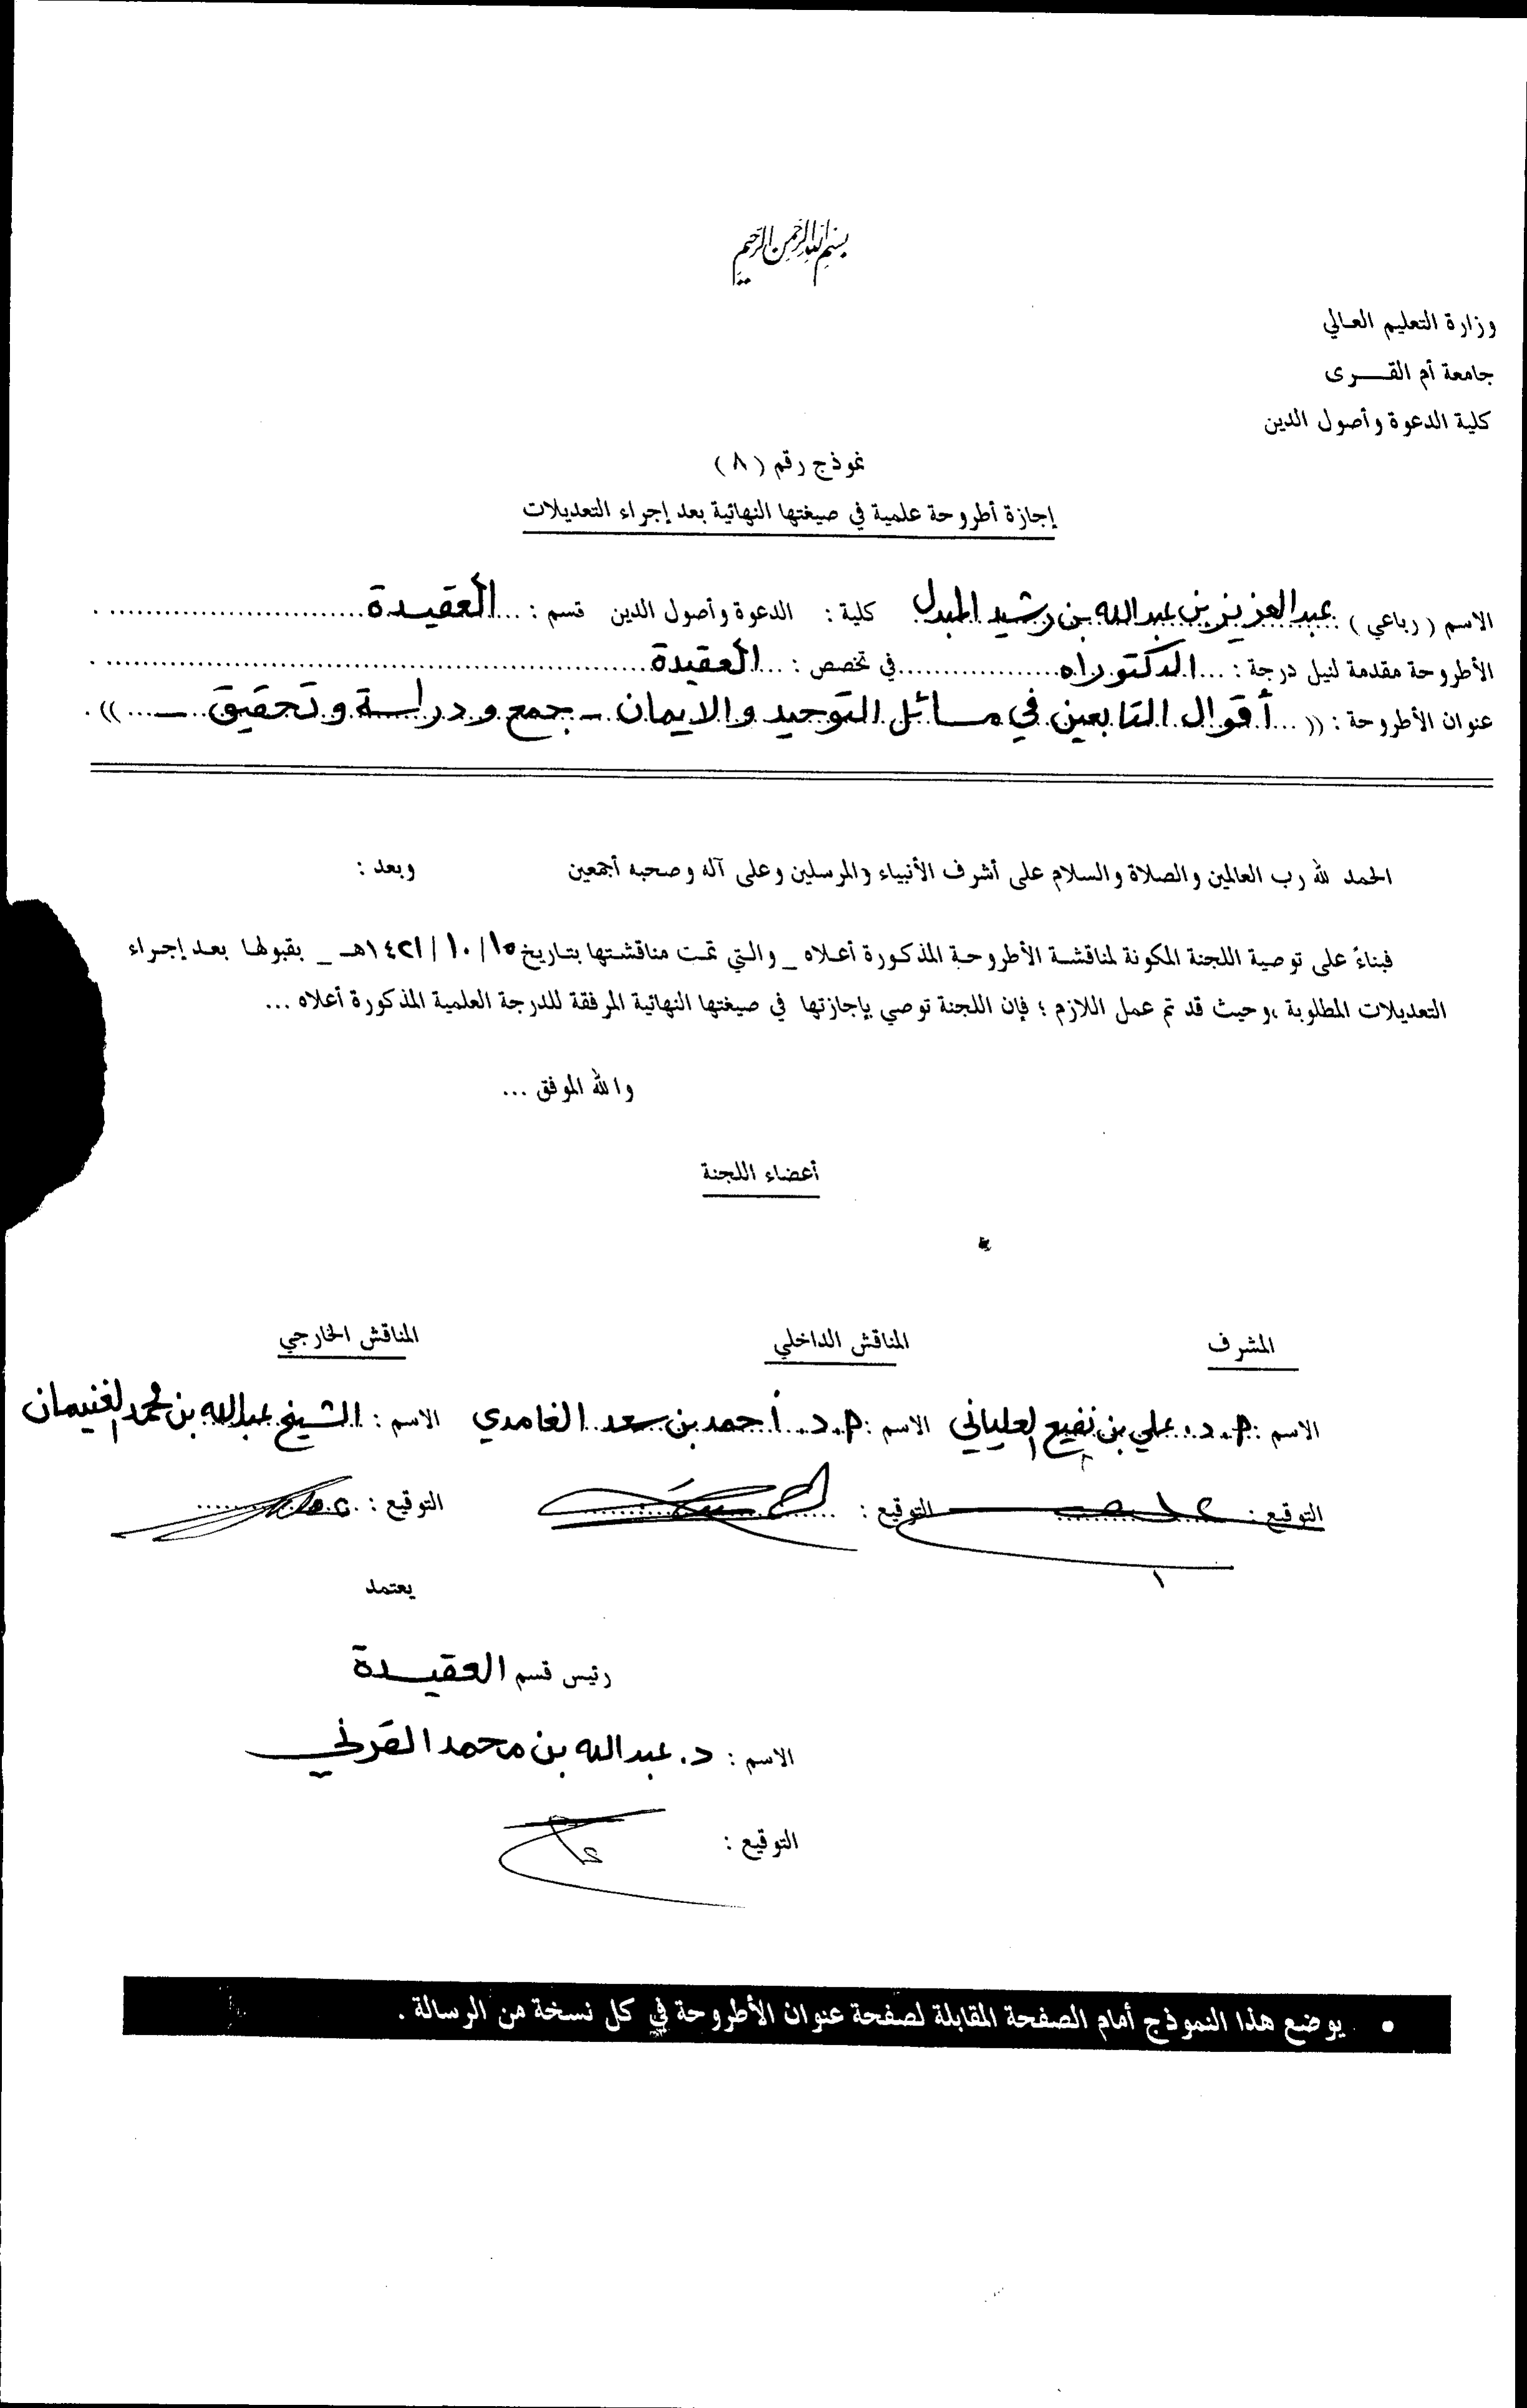 بسم الله الرحمن الرحيم
وزارة التعليم العالي
جامعة أم القـــرى
كلية الدعوة وأصول الدين
نموذج رقم ( ٨ )
إجازة أطروحة علمية في صيغتها النهائية بعد إجراء التعديلات
الاسم ( رباعي ) : عبدالعزيز بن عبدالله بن رشيد المبدل كلية : الدعوة وأصول الدين قسم : ... العقيدة ...
الأطروحة مقدمة لنيل درجة : ... الدكتوراه ... في تخصص : ... العقيدة ...
عنوان الأطروحة : (( ... أقوال التابعين في مسائل التوحيد والايمان - جمع ودراسة وتحقيق - ... )) .
الحمد لله رب العالمين والصلاة والسلام على أشرف الأنبياء والمرسلين وعلى آله وصحبه أجمعين وبعد :
فبناءً على توصية اللجنة المكونة لمناقشة الأطروحة المذكورة أعلاه _ والتي تمت مناقشتها بتاريخ ١٥/ ١٠ / ١٤٢١هـ _ بقبولها بعد إجراء
التعديلات المطلوبة ،وحيث قد تم عمل اللازم ؛ فإن اللجنة توصي بإجازتها في صيغتها النهائية المرفقة للدرجة العلمية المذكورة أعلاه ...
والله الموفق ...
أعضاء اللجنة
المشرف المناقش الداخلي المناقش الخارجي
الاسم : أ. د. علي بن نفيع العلياني الاسم : أ. د. أحمد بن سعد الغامدي الاسم : الشيخ عبدالله بن محمد الغنيمان
التوقيع : التوقيع : التوقيع :
يعتمد
رئيس قسم العقيدة
الاسم : د. عبدالله بن محمد القرني
التوقيع :
• يوضع هذا النموذج أمام الصفحة المقابلة لصفحة عنوان الأطروحة في كل نسخة من الرسالة .